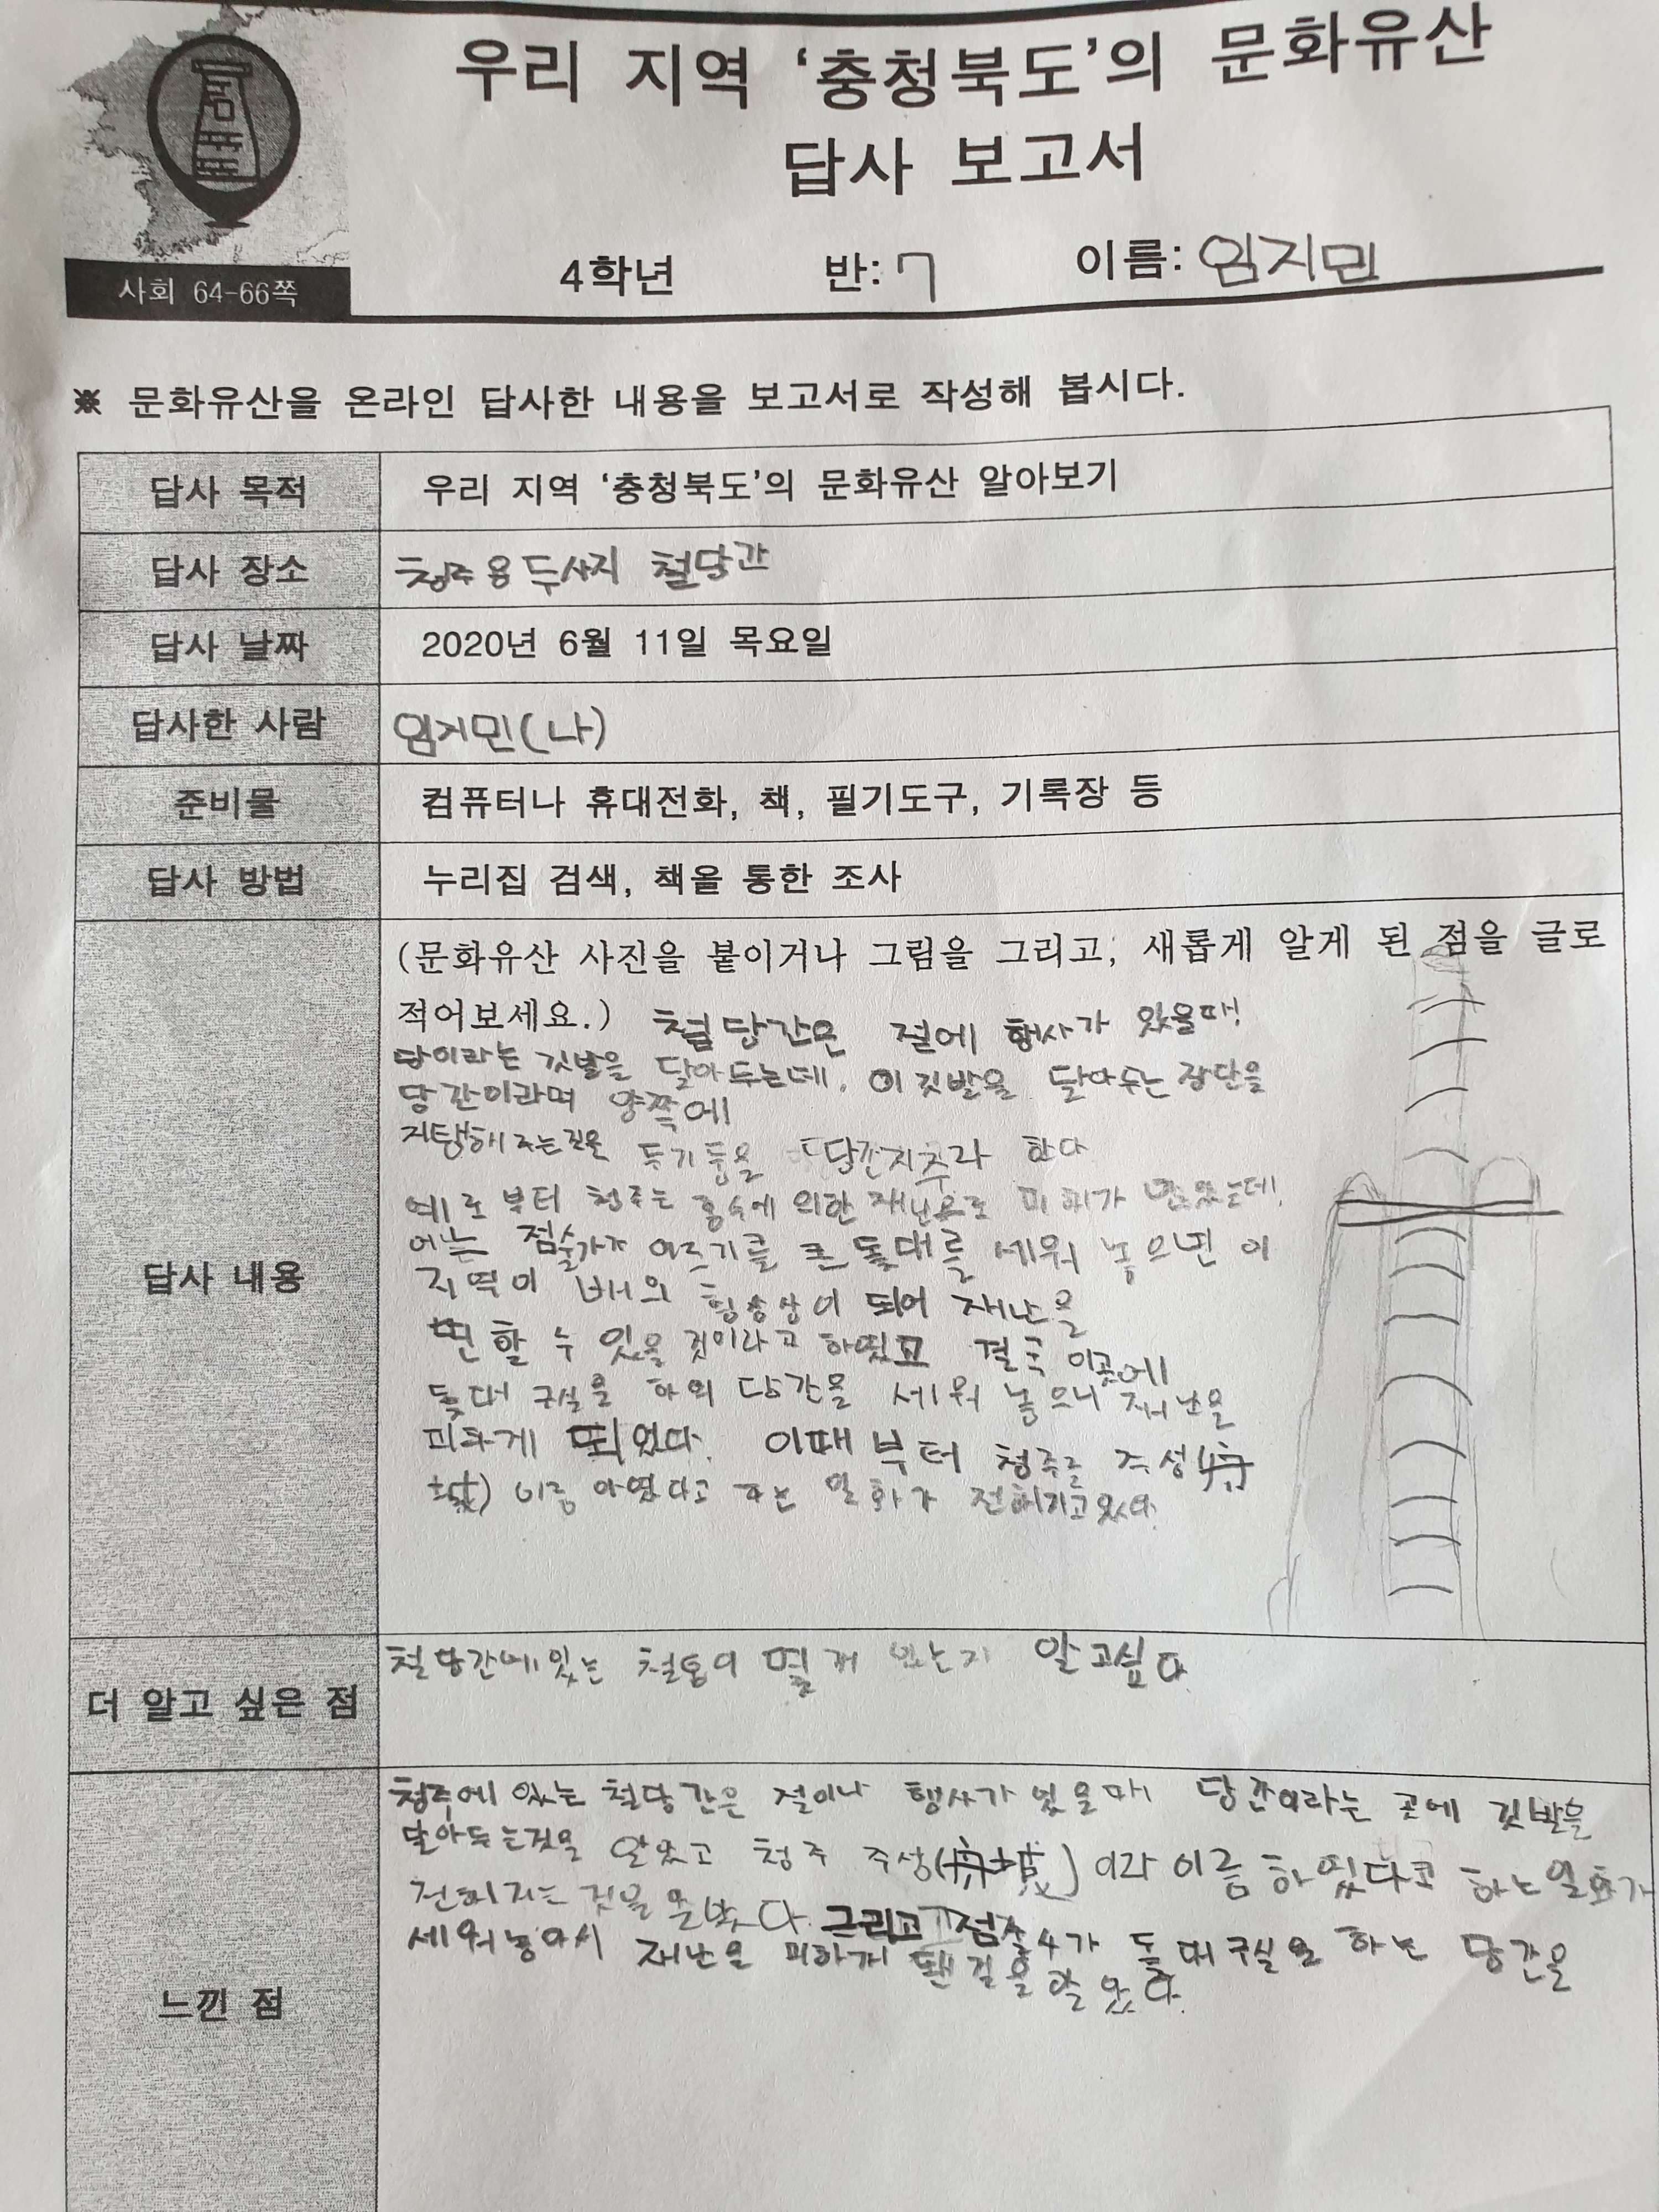 우리 지역 '충청북도'의 문화유산
답사 보고서
사회 64-66쪽
4학년 반: 7 이름: 임지민
※ 문화유산을 온라인 답사한 내용을 보고서로 작성해 봅시다.
답사 목적 우리 지역 '충청북도'의 문화유산 알아보기
답사 장소 청주용두사지 철당간
답사 날짜 2020년 6월 11일 목요일
답사한 사람 임지민(나)
준비물 컴퓨터나 휴대전화, 책, 필기도구, 기록장 등
답사 방법 누리집 검색, 책을 통한 조사
답사 내용
(문화유산 사진을 붙이거나 그림을 그리고, 새롭게 알게 된 점을 글로
적어보세요.) 철당간은 절에 행사가 있을때!
당이라는 깃발을 달아두는데. 이 깃발을 달아두는 장단을
당간이라며 양쪽에
지탱해주는 두기둥을 당간지주라 한다
예로부터 청주는 홍수에 의한 재난으로 피해가 많았는데,
어느 점술가가 큰 돛대를 세워 놓으면 이
지역이 배의 되어 재난을
면할 수 있을 것이라고 하였고 결국 이곳에
돛대 구실을 하의 당간을 세워 놓으니 재난을
피하게 되었다. 이때부터 청주를 주성(舟
城) 이름 하였다고 하는 일화가 전해지고있다.
더 알고 싶은 점 철당간에있는 철통이 몇개 있는지 알고싶다.
느낀 점
청주에 있는 철당간은 절이나 행사가 있을때 당간이라는 곳에 깃발을
달아두는것을 알았고 청주 주성(舟城)이라 이름하였다고 하는일화가
전해지는 것을 그리고 점술사가 돛대구실을 하는 당간을
세워놓아서 재난을 피하게 됀걸을 알았다.